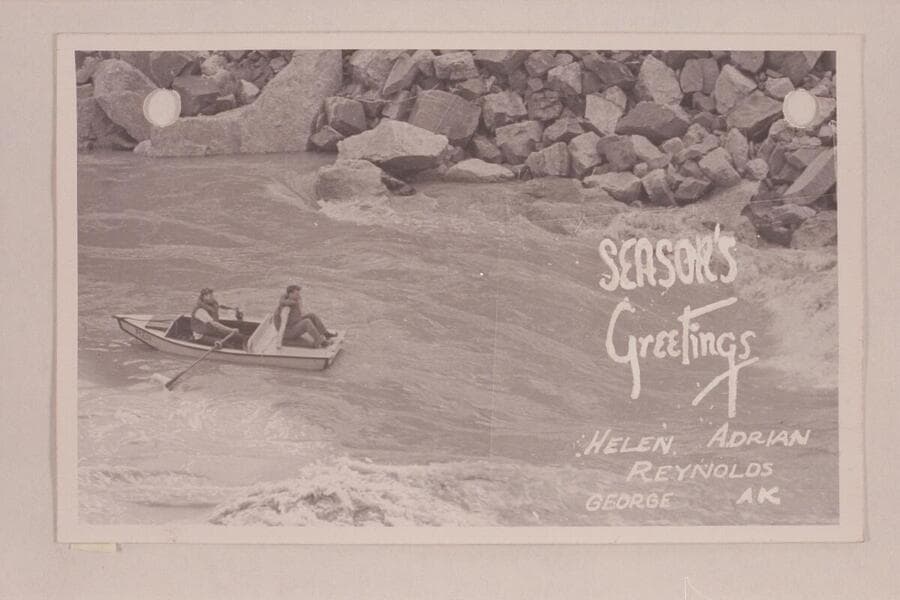 SEASON'S
Greetings
HELEN ADRIAN
REYNOLDS
GEORGE AK